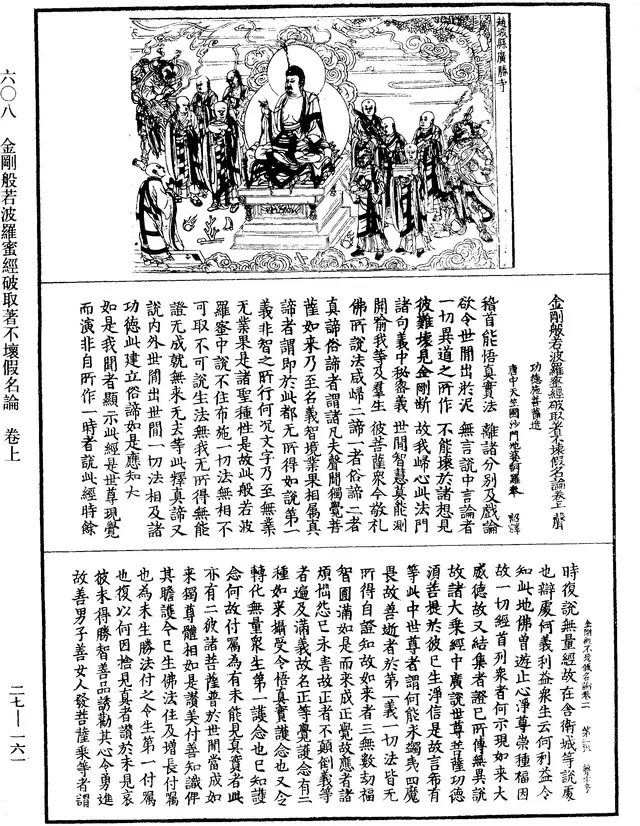 趙城縣廣勝寺
金剛般若波羅蜜經破取著不壞假名論卷上
功德施菩薩造
唐中天竺國沙門地婆訶羅等奉 詔譯
稽首能悟真實法 離諸分別及戲論
欲令世間出於泥 無言說中言論者
一切異道之所作 不能壞於諸想見
彼難壞見金剛斷 故我歸心此法門
諸句義中秘密義 世間智慧莫能測
開喻我等及羣生 彼菩薩衆今敬礼
佛所說法咸歸二諦一者俗諦二者
真諦俗諦者謂諸凡夫聲聞獨覺菩
薩如來乃至名義智境業果相属真
諦者謂即於此都无所得如說第一
義非智之所行何况文字乃至無業
無業果是諸聖種性是故此般若波
羅蜜中說不住布施一切法無相不
可取不可說生法無我无所得無能
證无成就無來无去等此釋真諦又
說内外世間出世間一切法相及諸
功德此建立俗諦如是應知
如是我聞者顯示此經是世尊現覺
而演非自所作一時者說此經時餘
時復說無量經故在舍衛城等說處
也辯處何義利益衆生云何利益令
知此地佛曾遊止心淨尊崇種福因
故一切經首列衆者何示現如來大
威德故又結集者證已所傳無異說
故諸大乘經中廣說世尊菩薩功德
須菩提於彼已生淨信是故言希有
等此中世尊者謂何能永蠲夷四魔
畏故善逝者於第一義一切法皆无
所得自證知故如來者三無數劫福
智圓滿如是而來成正覺故應者諸
煩惱怨已永害故正者不顛倒義等
者遍及滿義故名正等覺護念有二
種如來攝受令悟真實護念也又令
轉化無量衆生第一護念也已知護
念何故付屬為有未能見真實者此
亦有二彼諸菩薩普於世間當成如
來獨尊體相如是讃美付善知識俾
其瞻護令已生佛法住及增長付屬
也為未生勝法付之令生第一付屬
也復以何因捨見真者讃於未見哀
彼未得勝智善品誘勸其心令勇進
故善男子善女人發菩薩乘等者謂
六〇八 金剛般若波羅蜜經破取著不壞假名論 卷上
二七—一六一